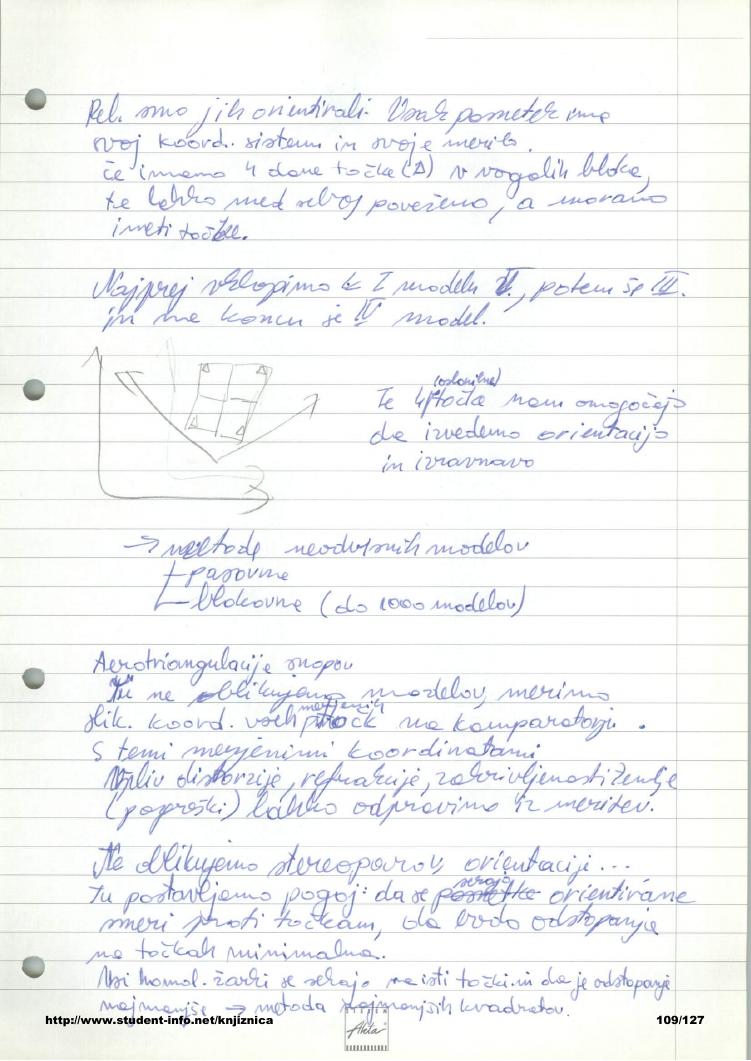 Rel. smo jih orientirali. Vsak posnetek ima
svoj koord. sistem in svoje merilo.
če imamo 4 dane točke (Δ) v vogalih bloka,
te lahko med seboj povežemo, a moramo
imeti točke.
Najprej vklopimo k I modelu II., potem še III.
in na koncu še IV model.
(oslonilne)
Te 4 točke nam omogočajo
da izvedemo orientacijo
in izravnavo
→ metode neodvisnih modelov
pasovne
blokovne (do 1000 modelov)
Aerotriangulacije snopov
Tu ne oblikujemo modelov, merimo
merjenih
slik. koord. vseh točk na komparatorju.
S temi merjenimi koordinatami
Vpliv distorzije, refrakcije, zakrivljenosti Zemlje
(pogreški) lahko odpravimo iz meritev.
Ne oblikujemo stereoparov, orientacij...
sekajo
Tu postavljamo pogoj: da se orientirane
smeri proti točkam, da bodo odstopanja
na točkah minimalna.
Vsi homol. žarki se sekajo na isti točki in da je odstopanje
najmanjše → metoda najmanjših kvadratov.
http://www.student-info.net/knjiznica
Akta
109/127